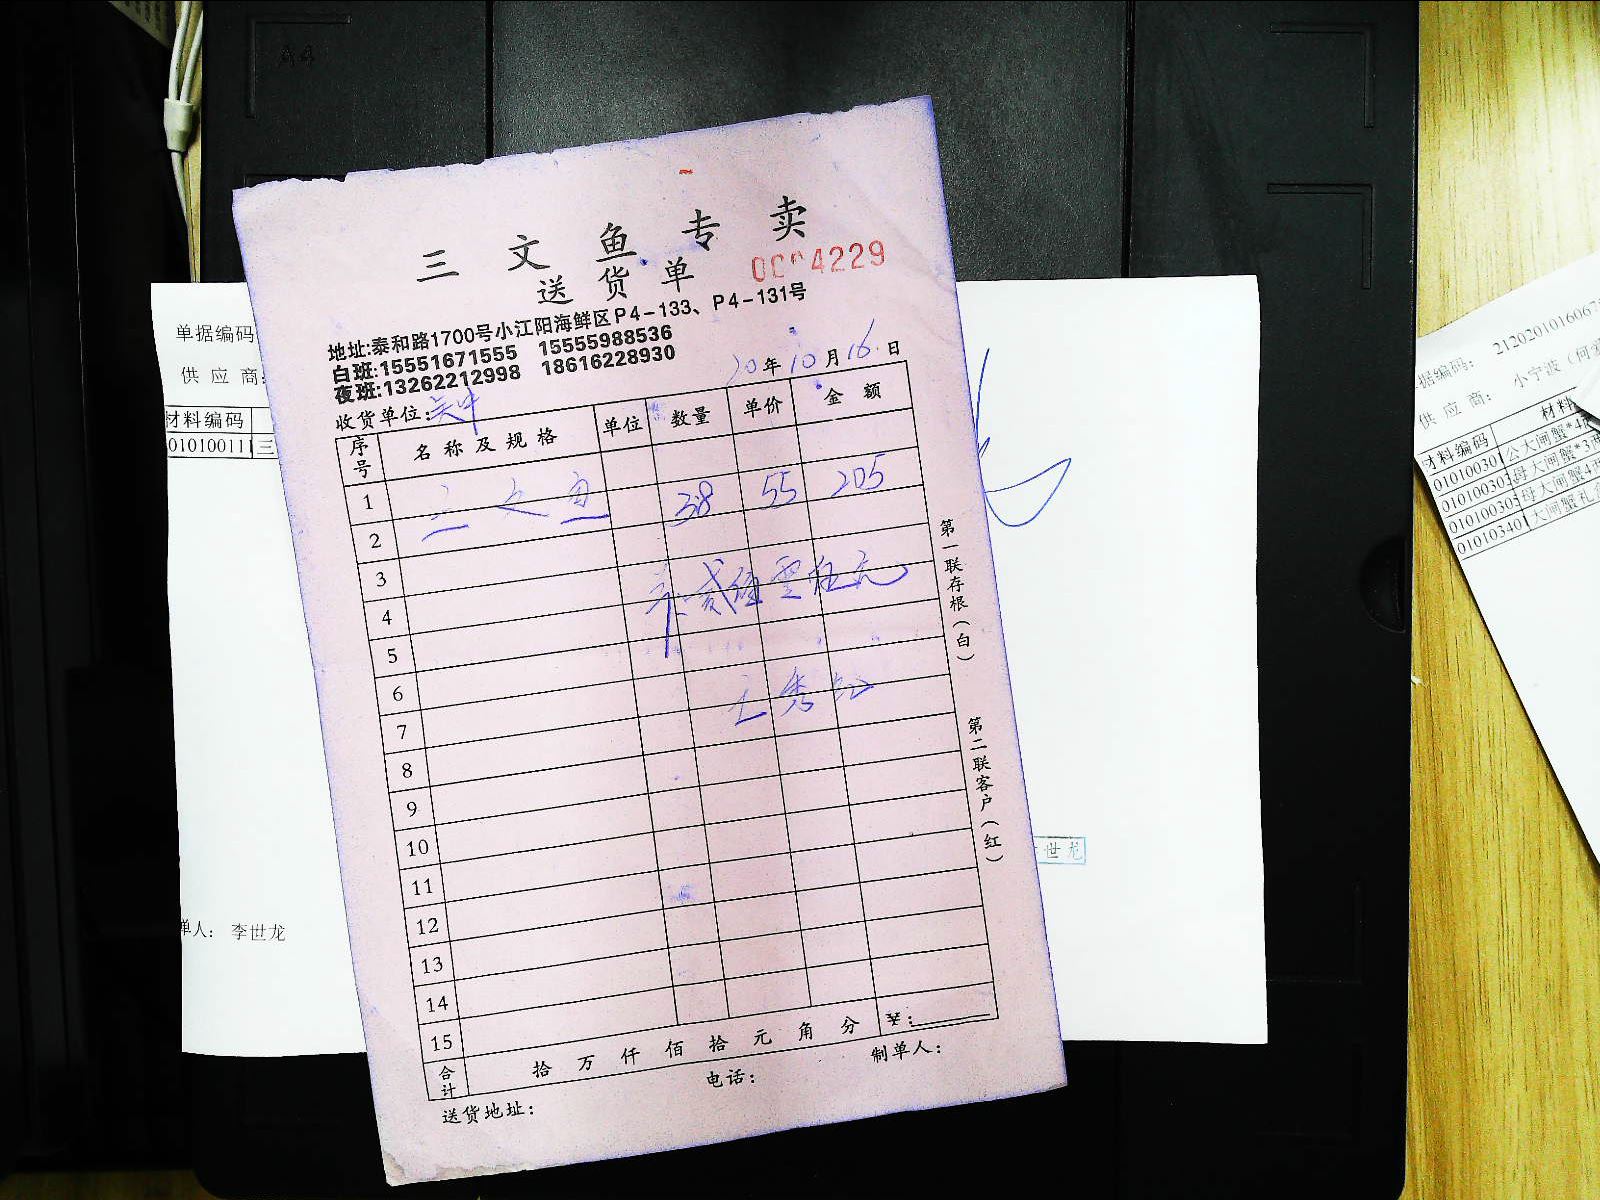 三文鱼专卖
送货单
4229
地址:泰和路1700号小江阳海鲜区P4-133、P4-131号
白班:15551671555 15555988536
夜班:13262212998 18616228930
20年10月16日
收货单位:
序号 名称及规格 单位 数量 单价 金额
1
三文鱼 38 55 205
2
3
4
贰佰零伍元
5
6
7
8
9
10
11
12
13
14
15
合计 拾万仟佰拾元角分 ¥:
送货地址: 电话: 制单人:
第一联存根(白)
第二联客户(红)
单据编码
供应商:
材料编码
01010011 三
单人: 李世龙
世龙
A4
据编码: 212020101606
供应商: 小宁波(何
材料编码 材料
01010030 公大闸蟹*4
01010030 母大闸蟹*3两
01010030 母大闸蟹4
01010340 大闸蟹礼